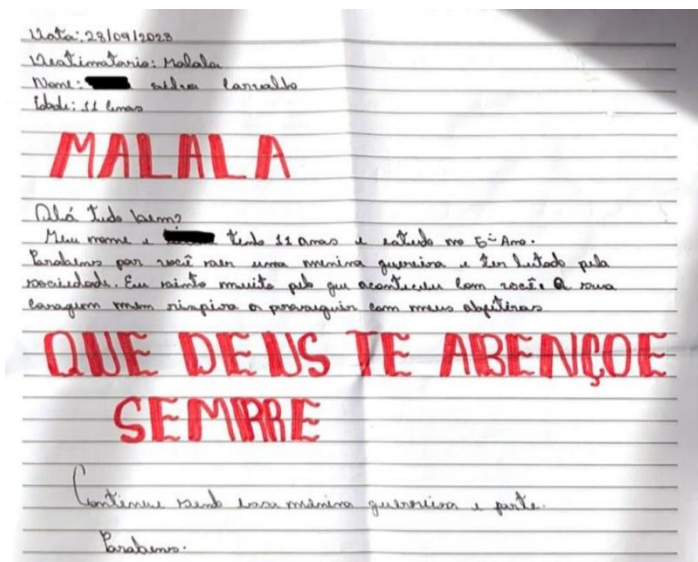 Data: 28/09/2023
Destinatario: Malala
Nome: silva Carvalho
Idade: 11 anos
MALALA
Olá tudo bem?
Meu nome e tenho 11 anos e estudo no 5º Ano.
Parabens por você ser uma menina guerreira e ter lutado pela
sociedade. Eu sinto muito pelo que aconteceu com você. a sua
coragem mim a com meus
QUE DEUS TE ABENÇOE
SEMPRE
Continue sendo essa menina guerreira e
Parabens.